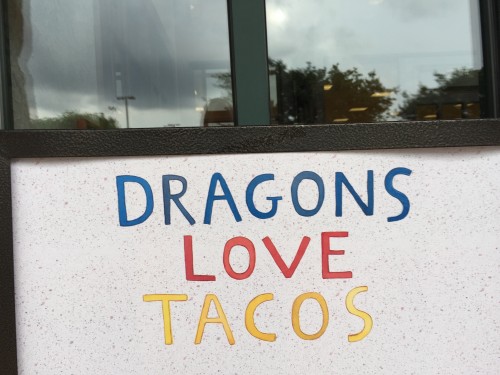 DRAGONS
LOVE
TACOS